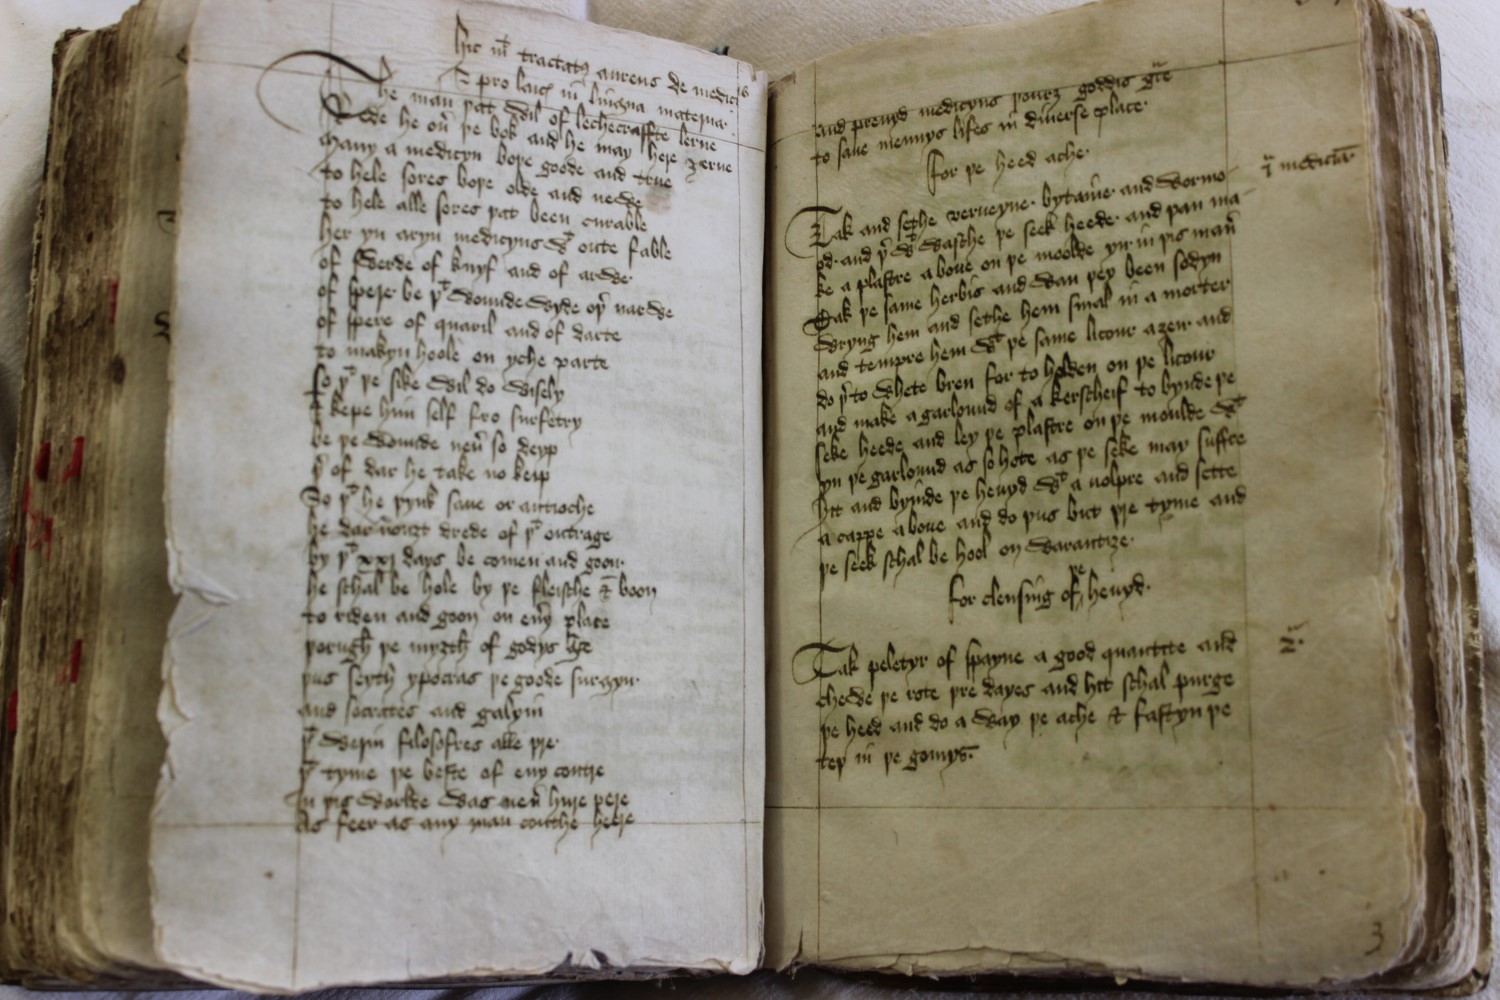 hic in̄ tractatꝰ aureus de medicīs
⁊ pro laic̄ in lingna materna
The man þat Wil of lechecraffte lerne
Rede he oū þe bok and he may here ȝerne
Many a medicyn boþe goode and true
to hele sores boþe olde and newe
to hele alle sores þat been curable
her yn aryn medicyns Wᵗ oute fable
of swerde of knyf and of arwe
of spere be þᵗ Wounde Wyde oþ̄ narwe
of spere of quaril and of darte
to makyn hoole on yche parte
So þᵗ þe sike Wil do Wisely
& kepe him self fro surfetry
be þe Wounde neū so deyp
þ̄ of dar he take no keip
So þᵗ he dynk save or antioche
he dar nouȝt drede of þᵗ outrage
by þᵗ xxj days be comen and goon
he schal be hole by þe fleische & boon
to riden and goon on eūy place
þorugh þe myȝth of godys g͛ce
þus seyth ypocras þe goode surgyn
and socrates and galyin
þᵗ Weþin filosofres alle þre
þᵗ tyme þe beste of eny contre
In þis Worlde Was neū hire pere
As feer as any man couthe heere
and prevyd medicyns þourȝ goddis g͛ce
to save mennys lifes in diverse place
For þe heed ache
j̄ medicīa
Tak and sethe verveyne bytaine and Wormo
od and þ̄ Wᵗ Wasche þe seek heede and þan ma
ke a plastre a bove on þe moolde yn in þis mañ
Tak þe same herbis and Wan þey been sodyn
Wryng hem and sethe hem smal in a morter
and tempre hem Wᵗ þe same licour aȝen and
do þ̄to Whete bren for to holden on þe licour
and make a garlound of a kerscheif to bynde þe
seke heede and ley þe plastre on þe moulde Wᵗ
yn þe garlound as so hote as þe seke may suffre
hit and bynde þe hevyd Wᵗ a volpre and sette
a cappe a bove and do þus but þre tyme and
þe seek schal be hool on Warantize
for clensing of þe hevyd
2
Tak peletyr of spayne a good quantite and
chewe þe rote þre dayes and hit schal purge
þe heed and do a Way þe ache & fastyn þe
teþ in þe gomys
3